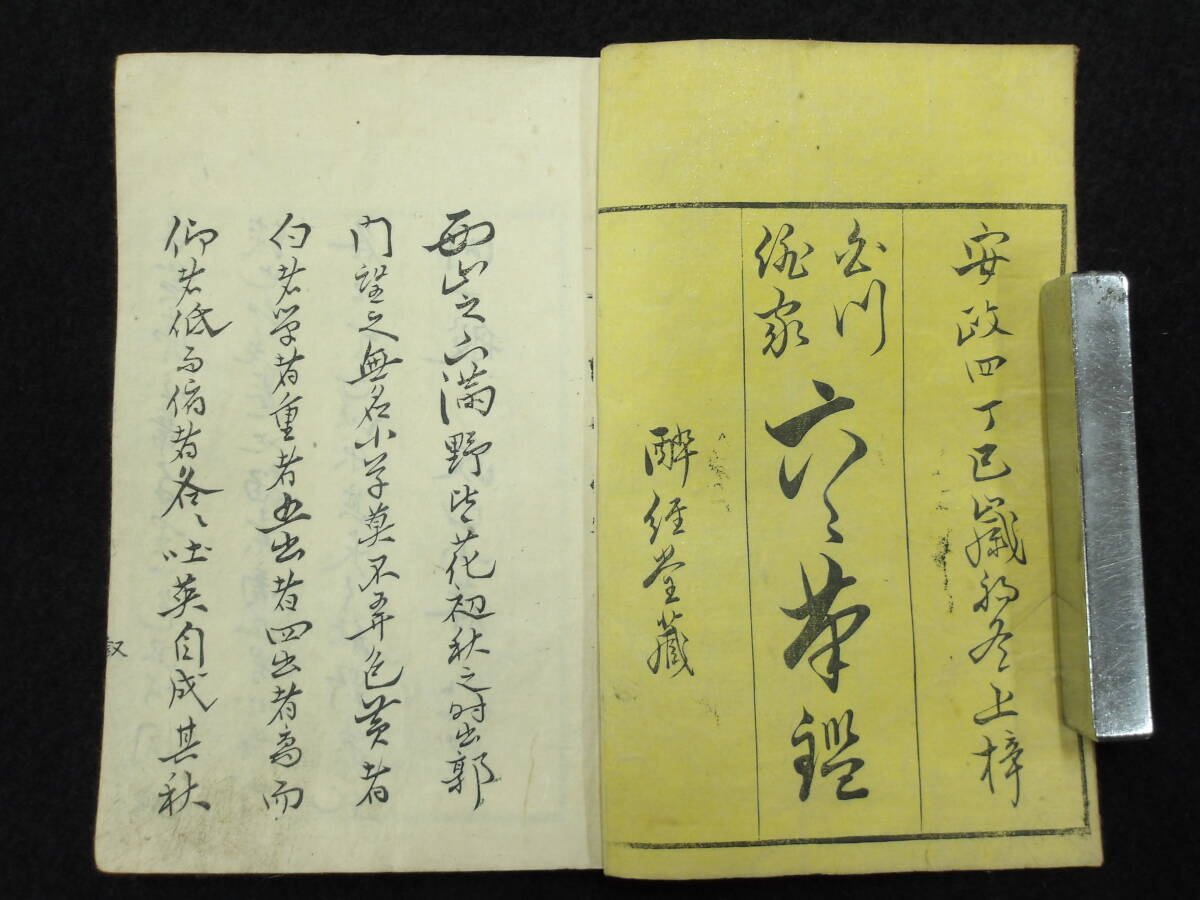 安政四丁巳歳初冬上梓
川
家
六々鑑
醉經堂藏
西山之下満野皆花初秋之时出郭
門望之無名小草莫不弄色黄者
白者単者重者五出者四出者高而
仰者低而俯者各々吐英自成其秋
叙